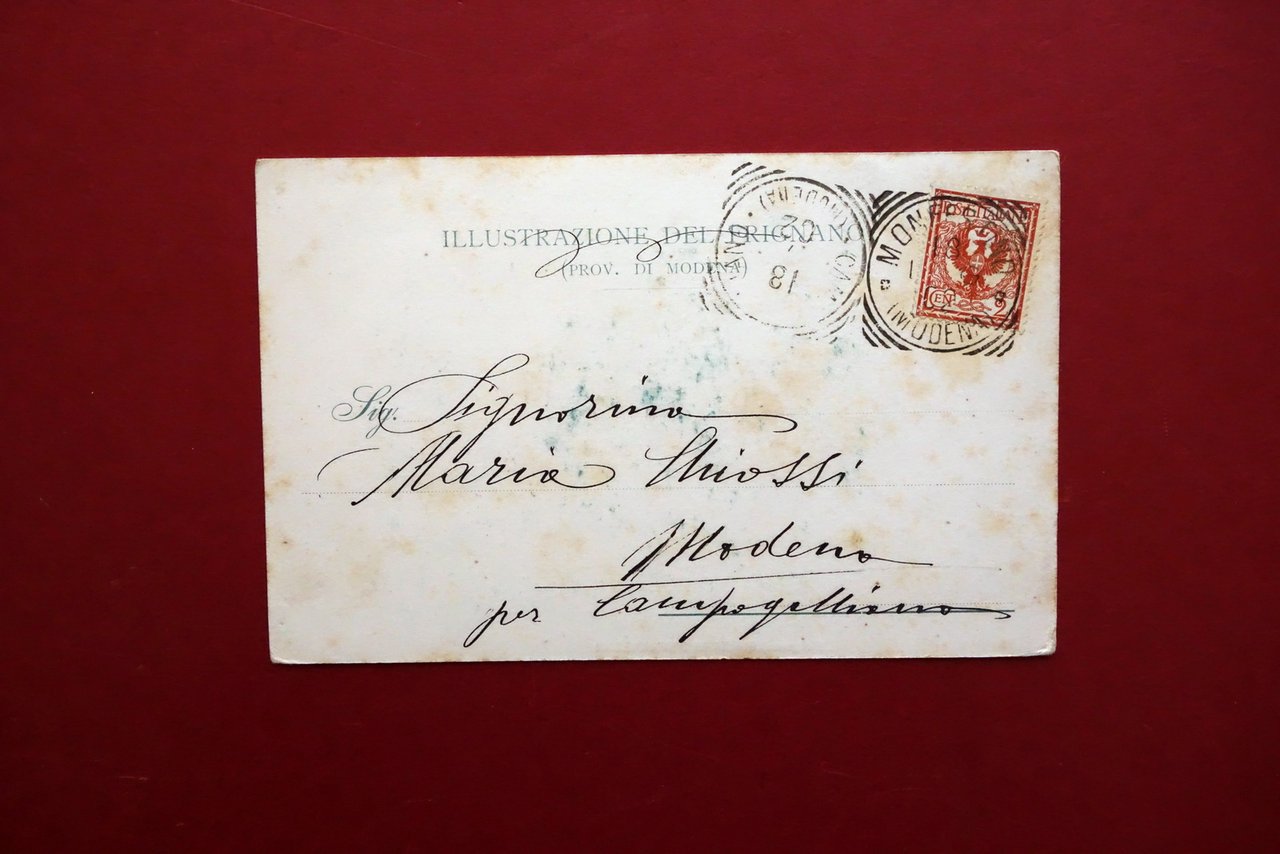 ILLUSTRAZIONE DEL FRIGNANO
(PROV. DI MODENA)
(MODENA)
02
18
MON
8
(MODENA)
CENT. 2
Sig. Signorina
Maria Chiossi
Modena
per Campogalliano